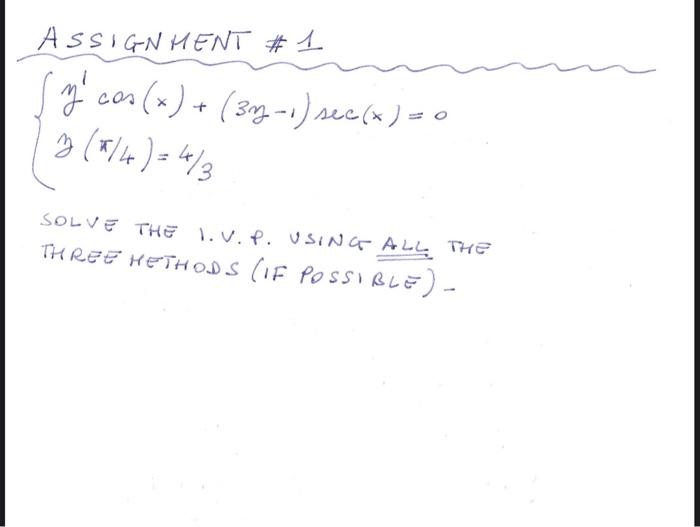 ASSIGNMENT # 1
y' cos(x) + (3y-1) sec(x) = 0
y(π/4) = 4/3
SOLVE THE I.V.P. USING ALL THE
THREE METHODS (IF POSSIBLE) -